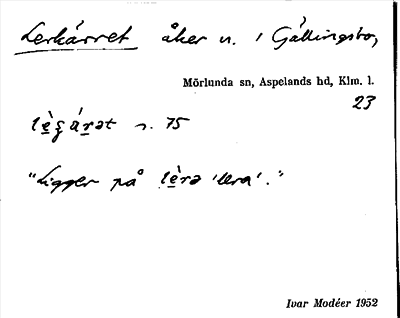 Lerkärret åker n. i Gällingsbo,
Mörlunda sn, Aspelands hd, Klm. l.
23
n. 75
"Ligger på lèrə 'lera'."
Ivar Modéer 1952